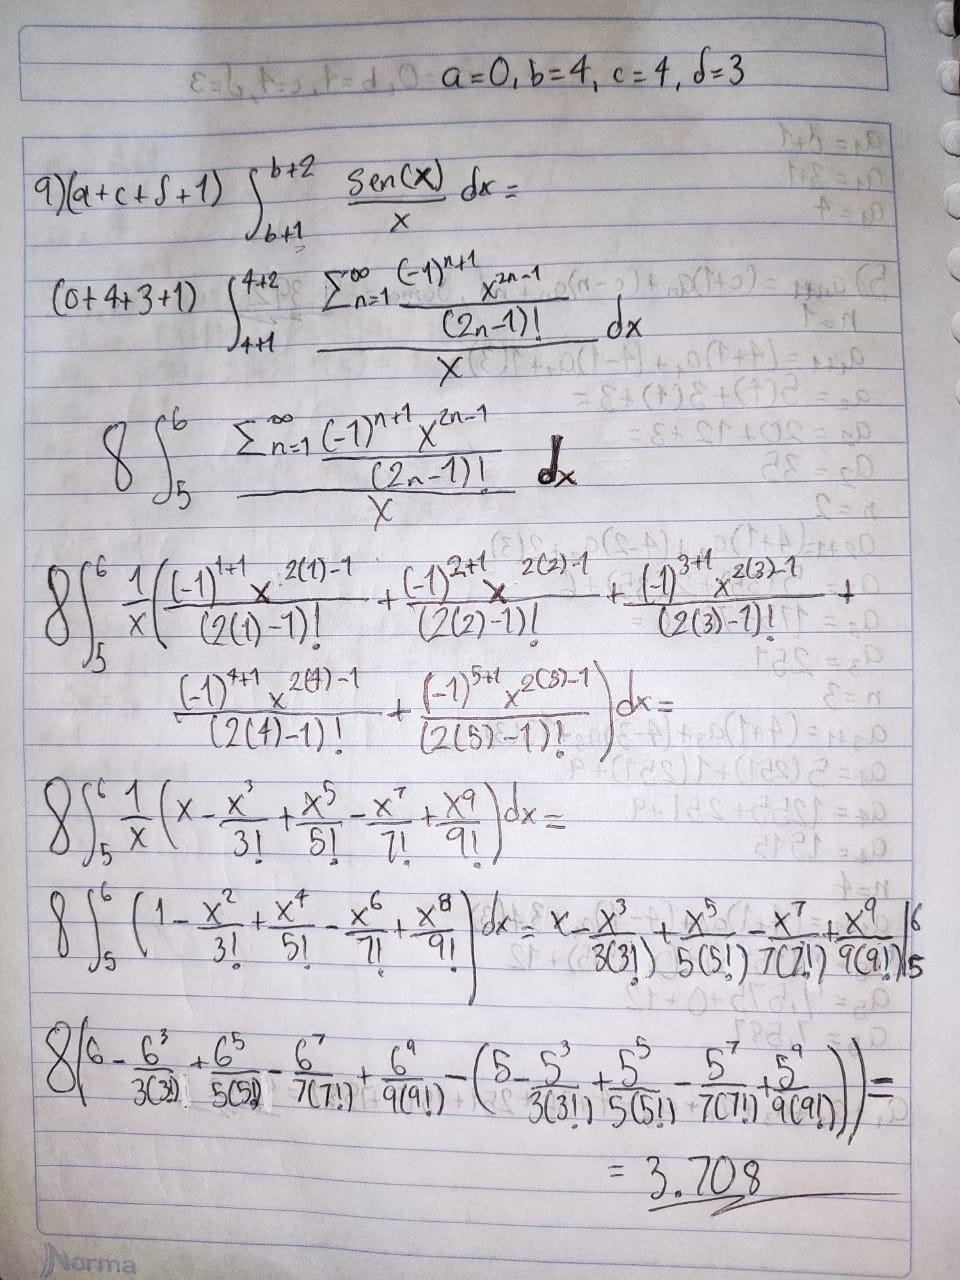 a=0, b=4, c=4, d=3
9)(a+c+d+1) ∫_{b+1}^{b+2} sen(x)/x dx =
(0+4+3+1) ∫_{4+1}^{4+2} (Σ_{n=1}^{∞} (-1)^{n+1} x^{2n-1}/(2n-1)!)/x dx
8 ∫_5^6 (Σ_{n=1}^{∞} (-1)^{n+1} x^{2n-1}/(2n-1)!)/x dx
8 ∫_5^6 1/x ( (-1)^{1+1} x^{2(1)-1}/(2(1)-1)! + (-1)^{2+1} x^{2(2)-1}/(2(2)-1)! + (-1)^{3+1} x^{2(3)-1}/(2(3)-1)! +
(-1)^{4+1} x^{2(4)-1}/(2(4)-1)! + (-1)^{5+1} x^{2(5)-1}/(2(5)-1)! ) dx =
8 ∫_5^6 1/x ( x - x^3/3! + x^5/5! - x^7/7! + x^9/9! ) dx =
8 ∫_5^6 ( 1 - x^2/3! + x^4/5! - x^6/7! + x^8/9! ) dx = x - x^3/3(3!) + x^5/5(5!) - x^7/7(7!) + x^9/9(9!) |_5^6
8( 6 - 6^3/3(3!) + 6^5/5(5!) - 6^7/7(7!) + 6^9/9(9!) - ( 5 - 5^3/3(3!) + 5^5/5(5!) - 5^7/7(7!) + 5^9/9(9!) ) ) =
= 3.708
Norma